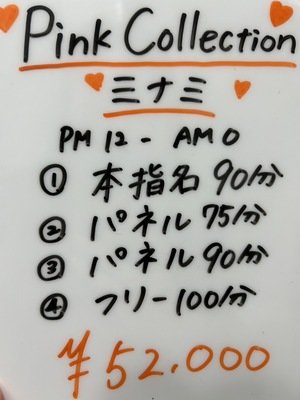 Pink Collection
ミナミ
PM 12 - AM 0
① 本指名 90分
② パネル 75分
③ パネル 90分
④ フリー 100分
¥52.000